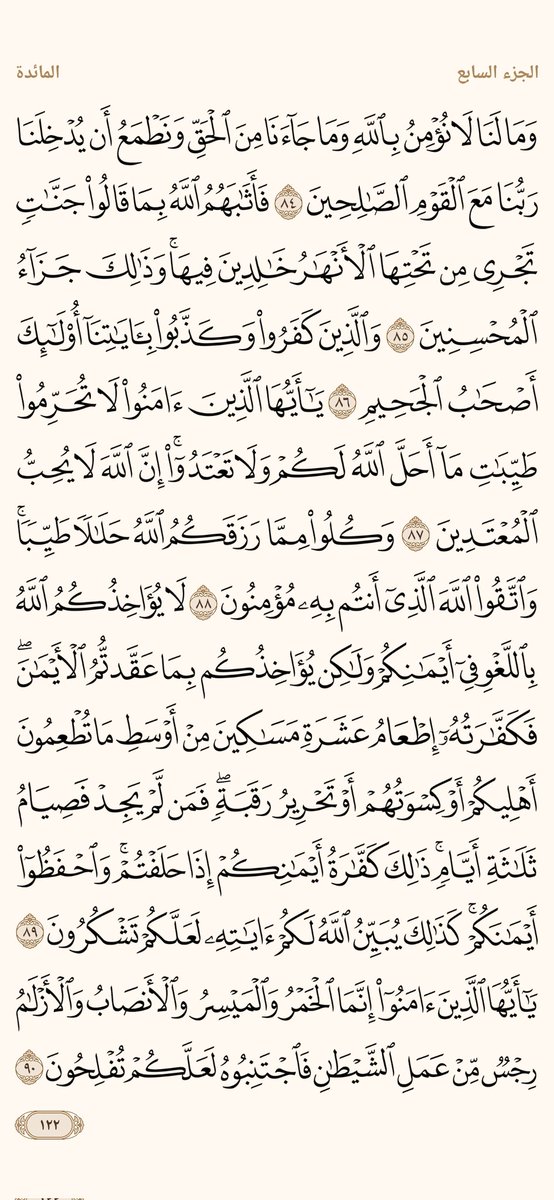 الجزء السابع المائدة
وَمَا لَنَا لَا نُؤْمِنُ بِٱللَّهِ وَمَا جَآءَنَا مِنَ ٱلْحَقِّ وَنَطْمَعُ أَن يُدْخِلَنَا
رَبُّنَا مَعَ ٱلْقَوْمِ ٱلصَّٰلِحِينَ ٨٤ فَأَثَٰبَهُمُ ٱللَّهُ بِمَا قَالُوا۟ جَنَّٰتٍ
تَجْرِى مِن تَحْتِهَا ٱلْأَنْهَٰرُ خَٰلِدِينَ فِيهَا ۚ وَذَٰلِكَ جَزَآءُ
ٱلْمُحْسِنِينَ ٨٥ وَٱلَّذِينَ كَفَرُوا۟ وَكَذَّبُوا۟ بِـَٔايَٰتِنَآ أُو۟لَٰٓئِكَ
أَصْحَٰبُ ٱلْجَحِيمِ ٨٦ يَٰٓأَيُّهَا ٱلَّذِينَ ءَامَنُوا۟ لَا تُحَرِّمُوا۟
طَيِّبَٰتِ مَآ أَحَلَّ ٱللَّهُ لَكُمْ وَلَا تَعْتَدُوٓا۟ ۚ إِنَّ ٱللَّهَ لَا يُحِبُّ
ٱلْمُعْتَدِينَ ٨٧ وَكُلُوا۟ مِمَّا رَزَقَكُمُ ٱللَّهُ حَلَٰلًا طَيِّبًا ۚ
وَٱتَّقُوا۟ ٱللَّهَ ٱلَّذِىٓ أَنتُم بِهِۦ مُؤْمِنُونَ ٨٨ لَا يُؤَاخِذُكُمُ ٱللَّهُ
بِٱللَّغْوِ فِىٓ أَيْمَٰنِكُمْ وَلَٰكِن يُؤَاخِذُكُم بِمَا عَقَّدتُّمُ ٱلْأَيْمَٰنَ ۖ
فَكَفَّٰرَتُهُۥٓ إِطْعَامُ عَشَرَةِ مَسَٰكِينَ مِنْ أَوْسَطِ مَا تُطْعِمُونَ
أَهْلِيكُمْ أَوْ كِسْوَتُهُمْ أَوْ تَحْرِيرُ رَقَبَةٍ ۖ فَمَن لَّمْ يَجِدْ فَصِيَامُ
ثَلَٰثَةِ أَيَّامٍ ۚ ذَٰلِكَ كَفَّٰرَةُ أَيْمَٰنِكُمْ إِذَا حَلَفْتُمْ ۚ وَٱحْفَظُوٓا۟
أَيْمَٰنَكُمْ ۚ كَذَٰلِكَ يُبَيِّنُ ٱللَّهُ لَكُمْ ءَايَٰتِهِۦ لَعَلَّكُمْ تَشْكُرُونَ ٨٩
يَٰٓأَيُّهَا ٱلَّذِينَ ءَامَنُوٓا۟ إِنَّمَا ٱلْخَمْرُ وَٱلْمَيْسِرُ وَٱلْأَنصَابُ وَٱلْأَزْلَٰمُ
رِجْسٌ مِّنْ عَمَلِ ٱلشَّيْطَٰنِ فَٱجْتَنِبُوهُ لَعَلَّكُمْ تُفْلِحُونَ ٩٠
١٢٢